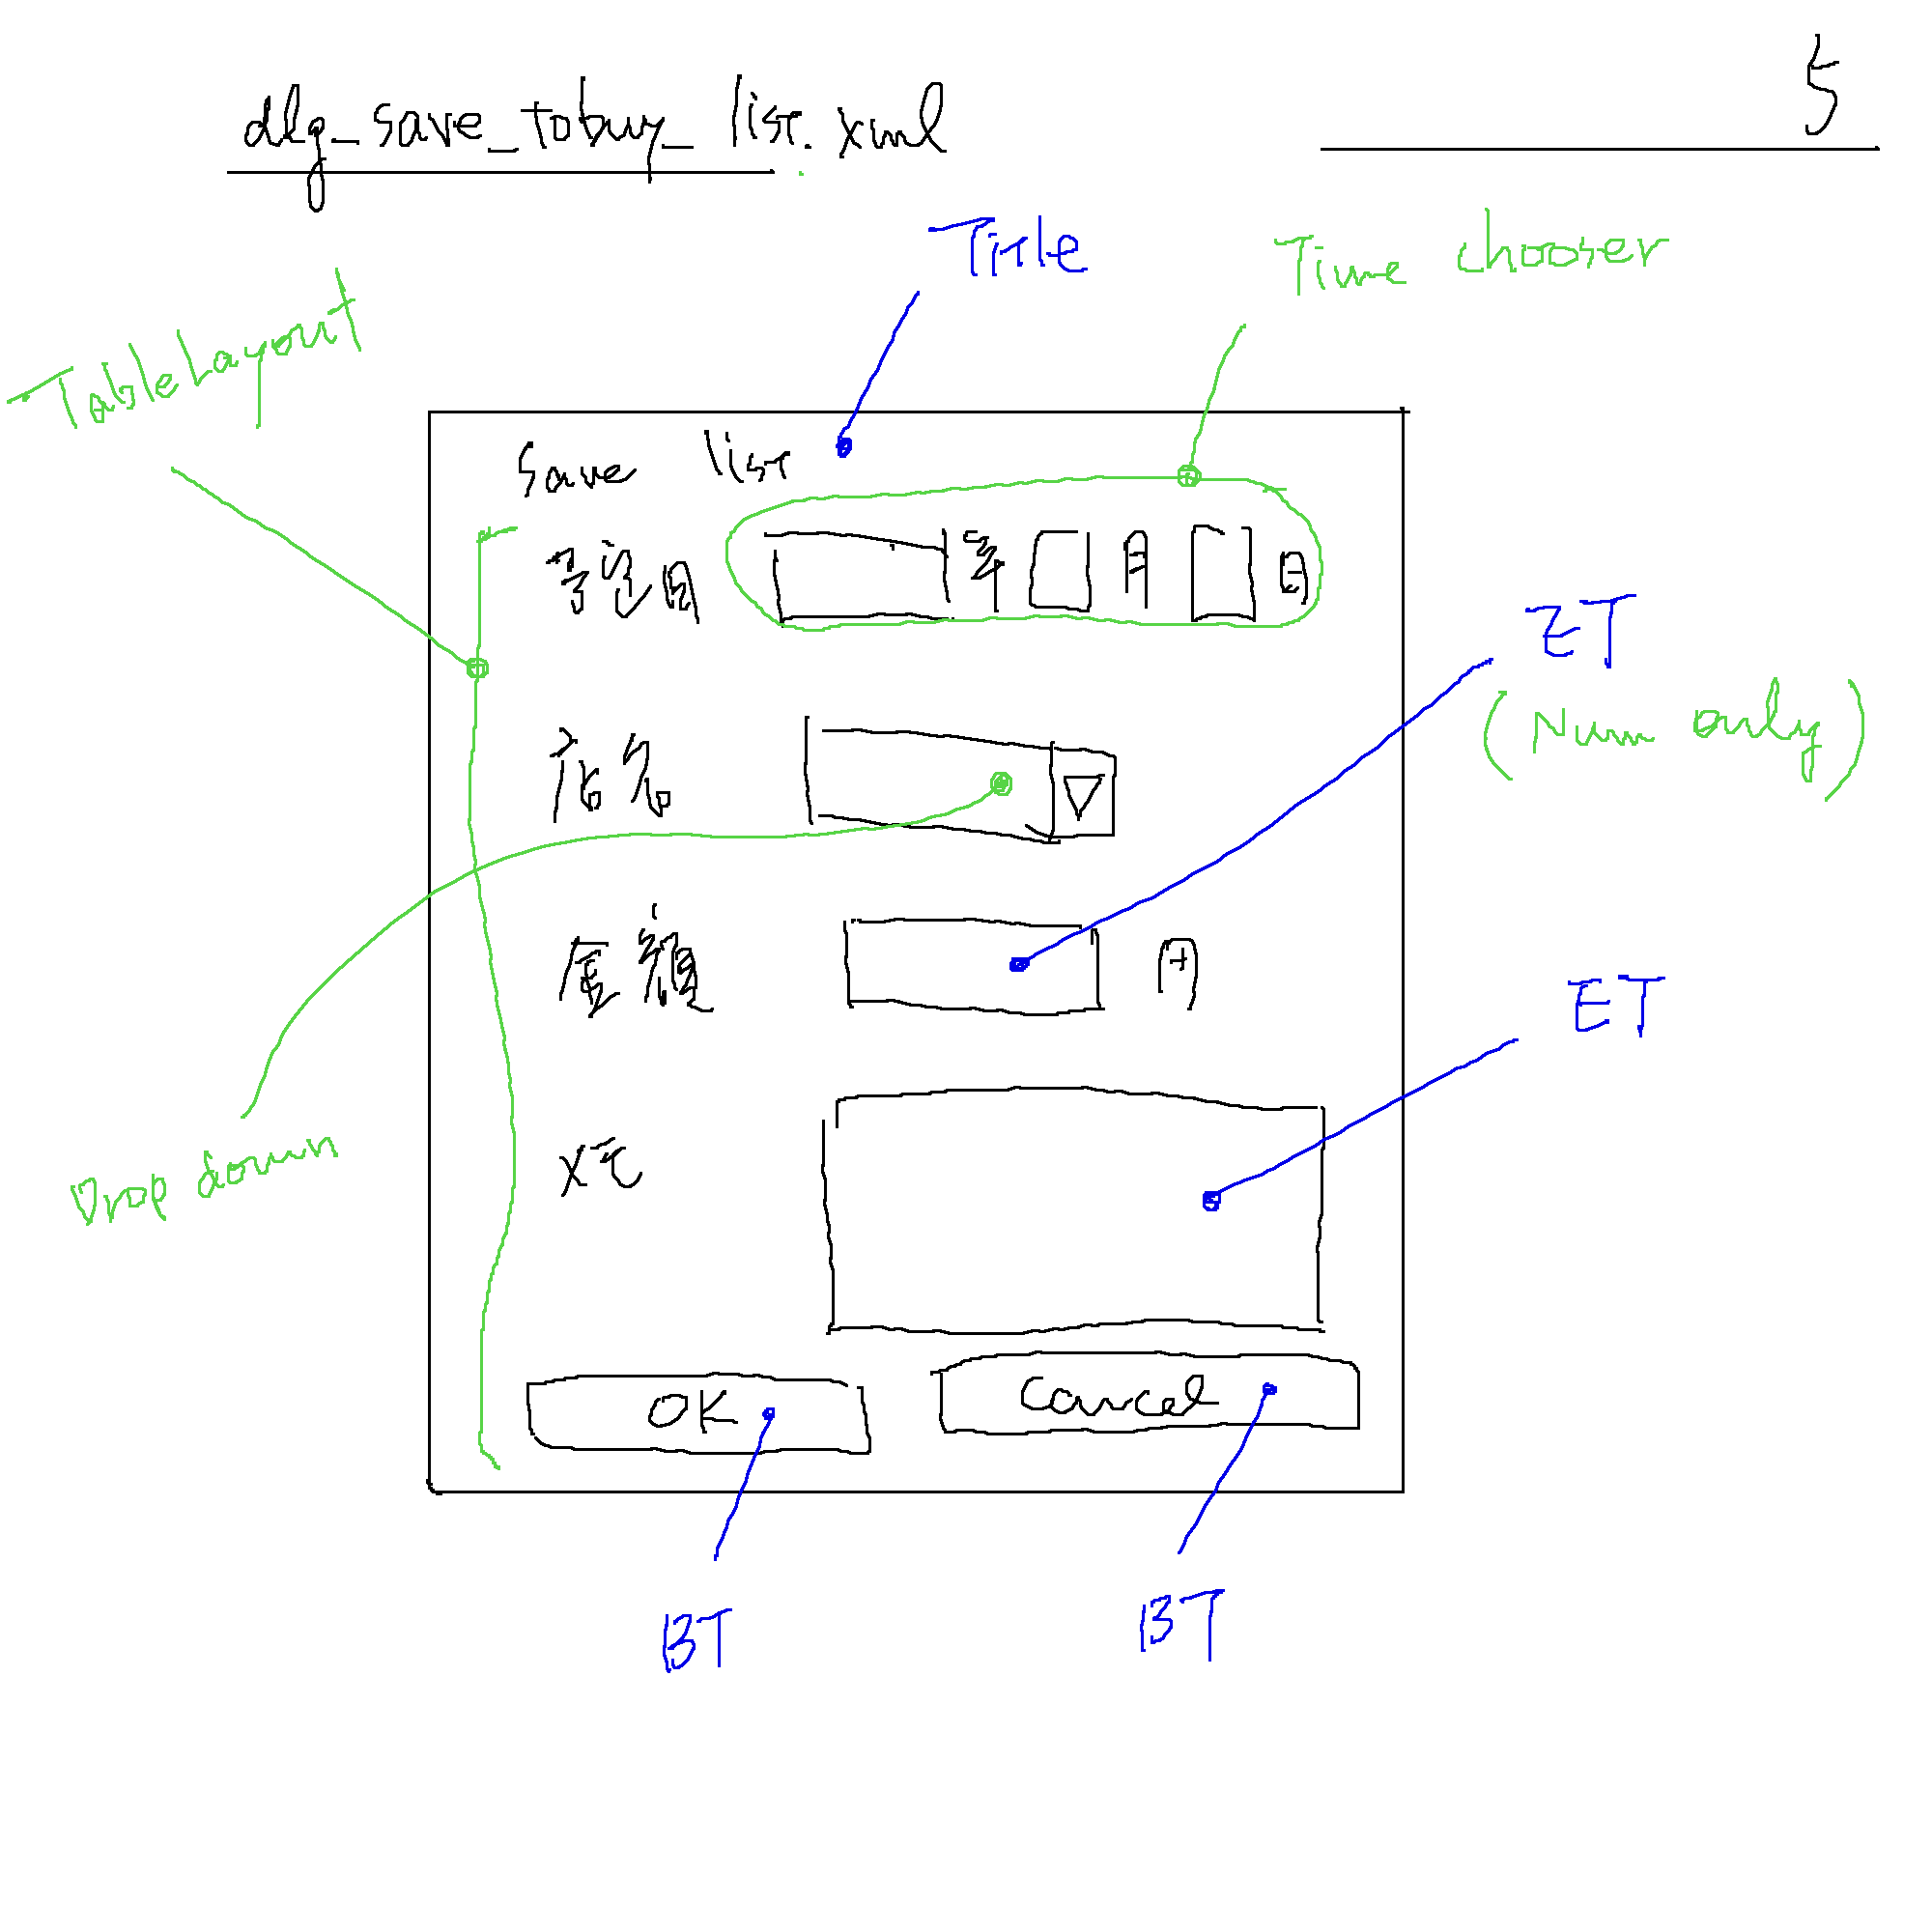 5
dlg_save_tobuy_list.xml
Title
Time chooser
TableLayout
Save list
予定日 年 月 日
ET
(Num only)
店名
金額 円
ET
メモ
Drop down
OK Cancel
BT BT